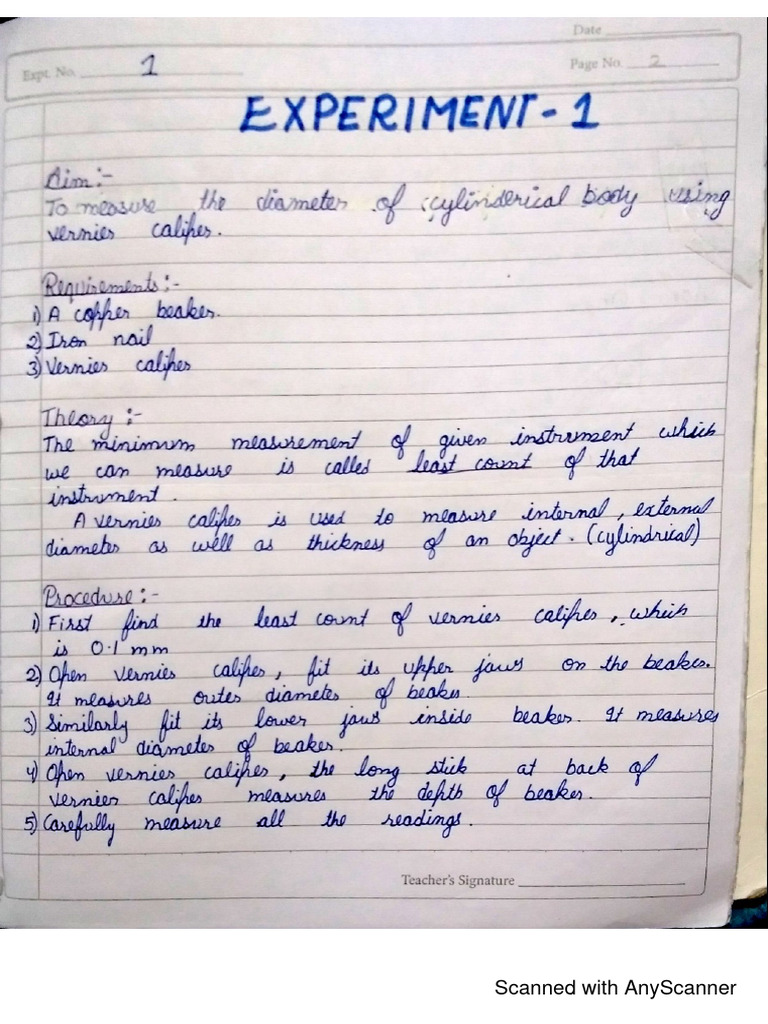 Date
Expt. No. 1
Page No. 2
EXPERIMENT - 1
Aim :-
To measure the diameter of cylinderical body using
vernier calipes.
Requirements :-
1) A copper beaker.
2) Iron nail
3) Vernier calipes
Theory :-
The minimum measurement of given instrument which
we can measure is called least count of that
instrument.
A vernier calipes is used to measure internal, external
diameter as well as thickness of an object. (cylindrical)
Procedure :-
1) First find the least count of vernier calipes, which
is 0.1 mm
2) Open vernier calipes, fit its upper jaws on the beaker.
It measures outer diameter of beaker.
3) Similarly fit its lower jaws inside beaker. It measures
internal diameter of beaker.
4) Open vernier calipes, the long stick at back of
vernier calipes measures the depth of beaker.
5) Carefully measure all the readings.
Teacher's Signature
Scanned with AnyScanner